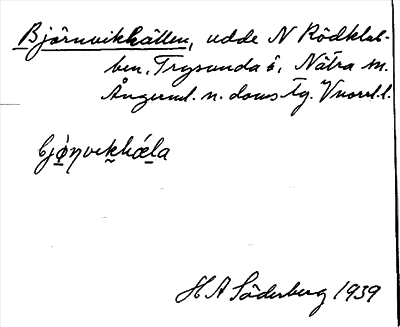 Björnvikhällen, udde N Rödklub-
ben, Trysunda ö, Nätra sn.
Ångerml. n. doms tg. Vnorrl. l.
H A Söderberg 1939